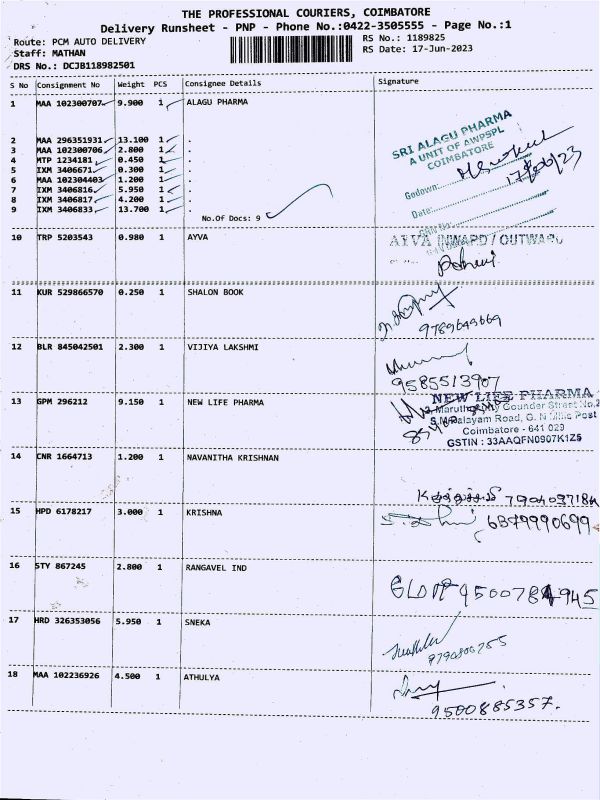 THE PROFESSIONAL COURIERS, COIMBATORE
Delivery Runsheet - PNP - Phone No.:0422-3505555 - Page No.:1
Route: PCM AUTO DELIVERY
RS No.: 1189825
Staff: MATHAN
RS Date: 17-Jun-2023
DRS No.: DCJB118982501
S No Consignment No Weight PCS Consignee Details Signature
1 MAA 102300707 9.900 1 ALAGU PHARMA
2 MAA 296351931 13.100 1 .
3 MAA 102300706 2.800 1 .
4 MTP 1234181 0.450 1 .
5 IXM 3406671 0.300 1 .
6 MAA 102304403 1.200 1 .
7 IXM 3406816 5.950 1 .
8 IXM 3406817 4.200 1 .
9 IXM 3406833 13.700 1 .
No.Of Docs: 9
SRI ALAGU PHARMA
A UNIT OF AWPSPL
COIMBATORE
Godown:
17/06/23
Date:
10 TRP 5203543 0.980 1 AYVA
AYVA INWARD / OUTWARD
11 KUR 529866570 0.250 1 SHALON BOOK
9789649669
12 BLR 845042501 2.300 1 VIJIYA LAKSHMI
9585513907
13 GPM 296212 9.150 1 NEW LIFE PHARMA
NEW LIFE PHARMA
Gounder Street No.2
Palayam Road, G. N Mills Post
Coimbatore - 641 029
GSTIN : 33AAQFN0907K1Z5
14 CNR 1664713 1.200 1 NAVANITHA KRISHNAN
15 HPD 6178217 3.000 1 KRISHNA
6379990699
16 STY 867245 2.800 1 RANGAVEL IND
945
17 HRD 326353056 5.950 1 SNEKA
9790800755
18 MAA 102236926 4.500 1 ATHULYA
9500885357.